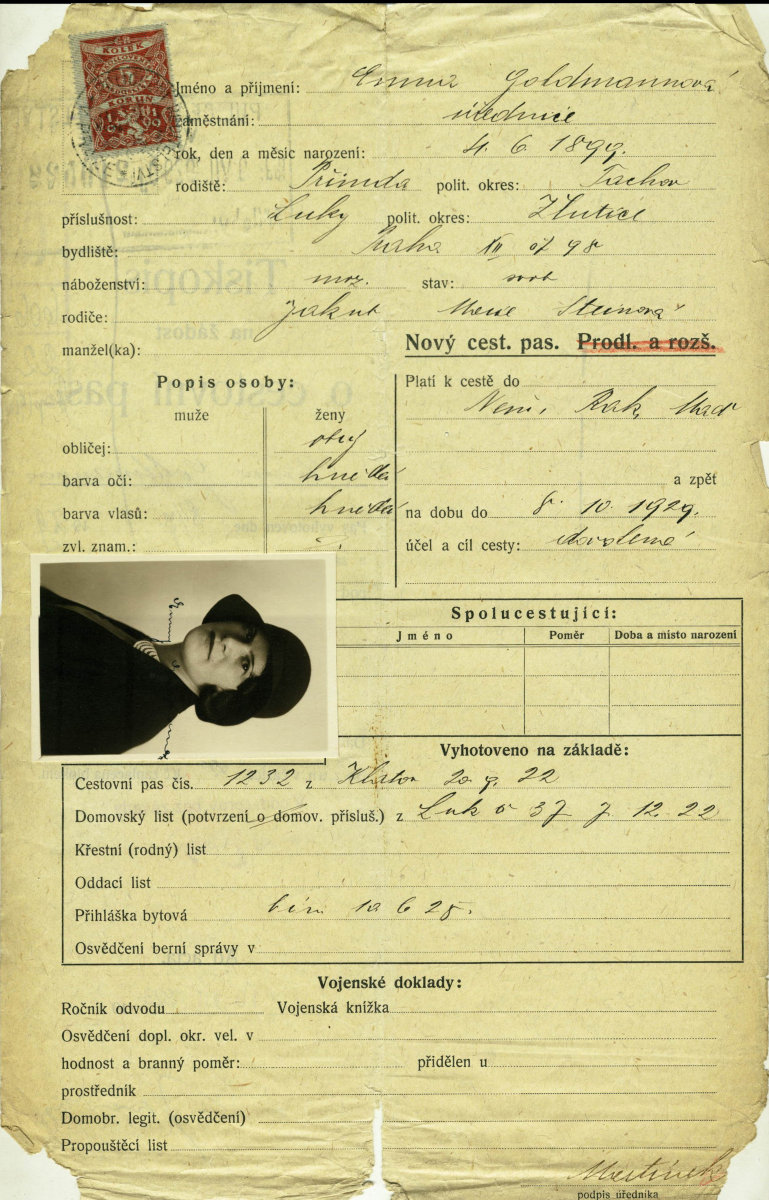 KOLEK
5
KORUN
Jméno a příjmení: Emma Goldmannová
zaměstnání: úřednice
rok, den a měsíc narození: 4. 6. 1899.
rodiště: Přimda polit. okres: Tachov
příslušnost: Luky polit. okres: Žlutice
bydliště: Praha XII 98
náboženství: moz. stav: svob
rodiče: Jakub Steinová
manžel(ka):
Nový cest. pas. Prodl. a rozš.
Popis osoby:
muže ženy
obličej:
barva očí: hnědá
barva vlasů: hnědá
zvl. znam.:
Platí k cestě do
Něm, Rak, Maď
a zpět
na dobu do 8. 10. 1929.
účel a cíl cesty: dovolená
Spolucestující:
Jméno Poměr Doba a místo narození
Vyhotoveno na základě:
Cestovní pas čís. 1232 z Klatov 20 9. 22
Domovský list (potvrzení o domov. přísluš.) z Luk 37 7. 12. 22
Křestní (rodný) list
Oddací list
Přihláška bytová 10 6 25.
Osvědčení berní správy v
Vojenské doklady:
Ročník odvodu Vojenská knížka
Osvědčení dopl. okr. vel. v
hodnost a branný poměr: přidělen u
prostředník
Domobr. legit. (osvědčení)
Propouštěcí list
podpis úředníka